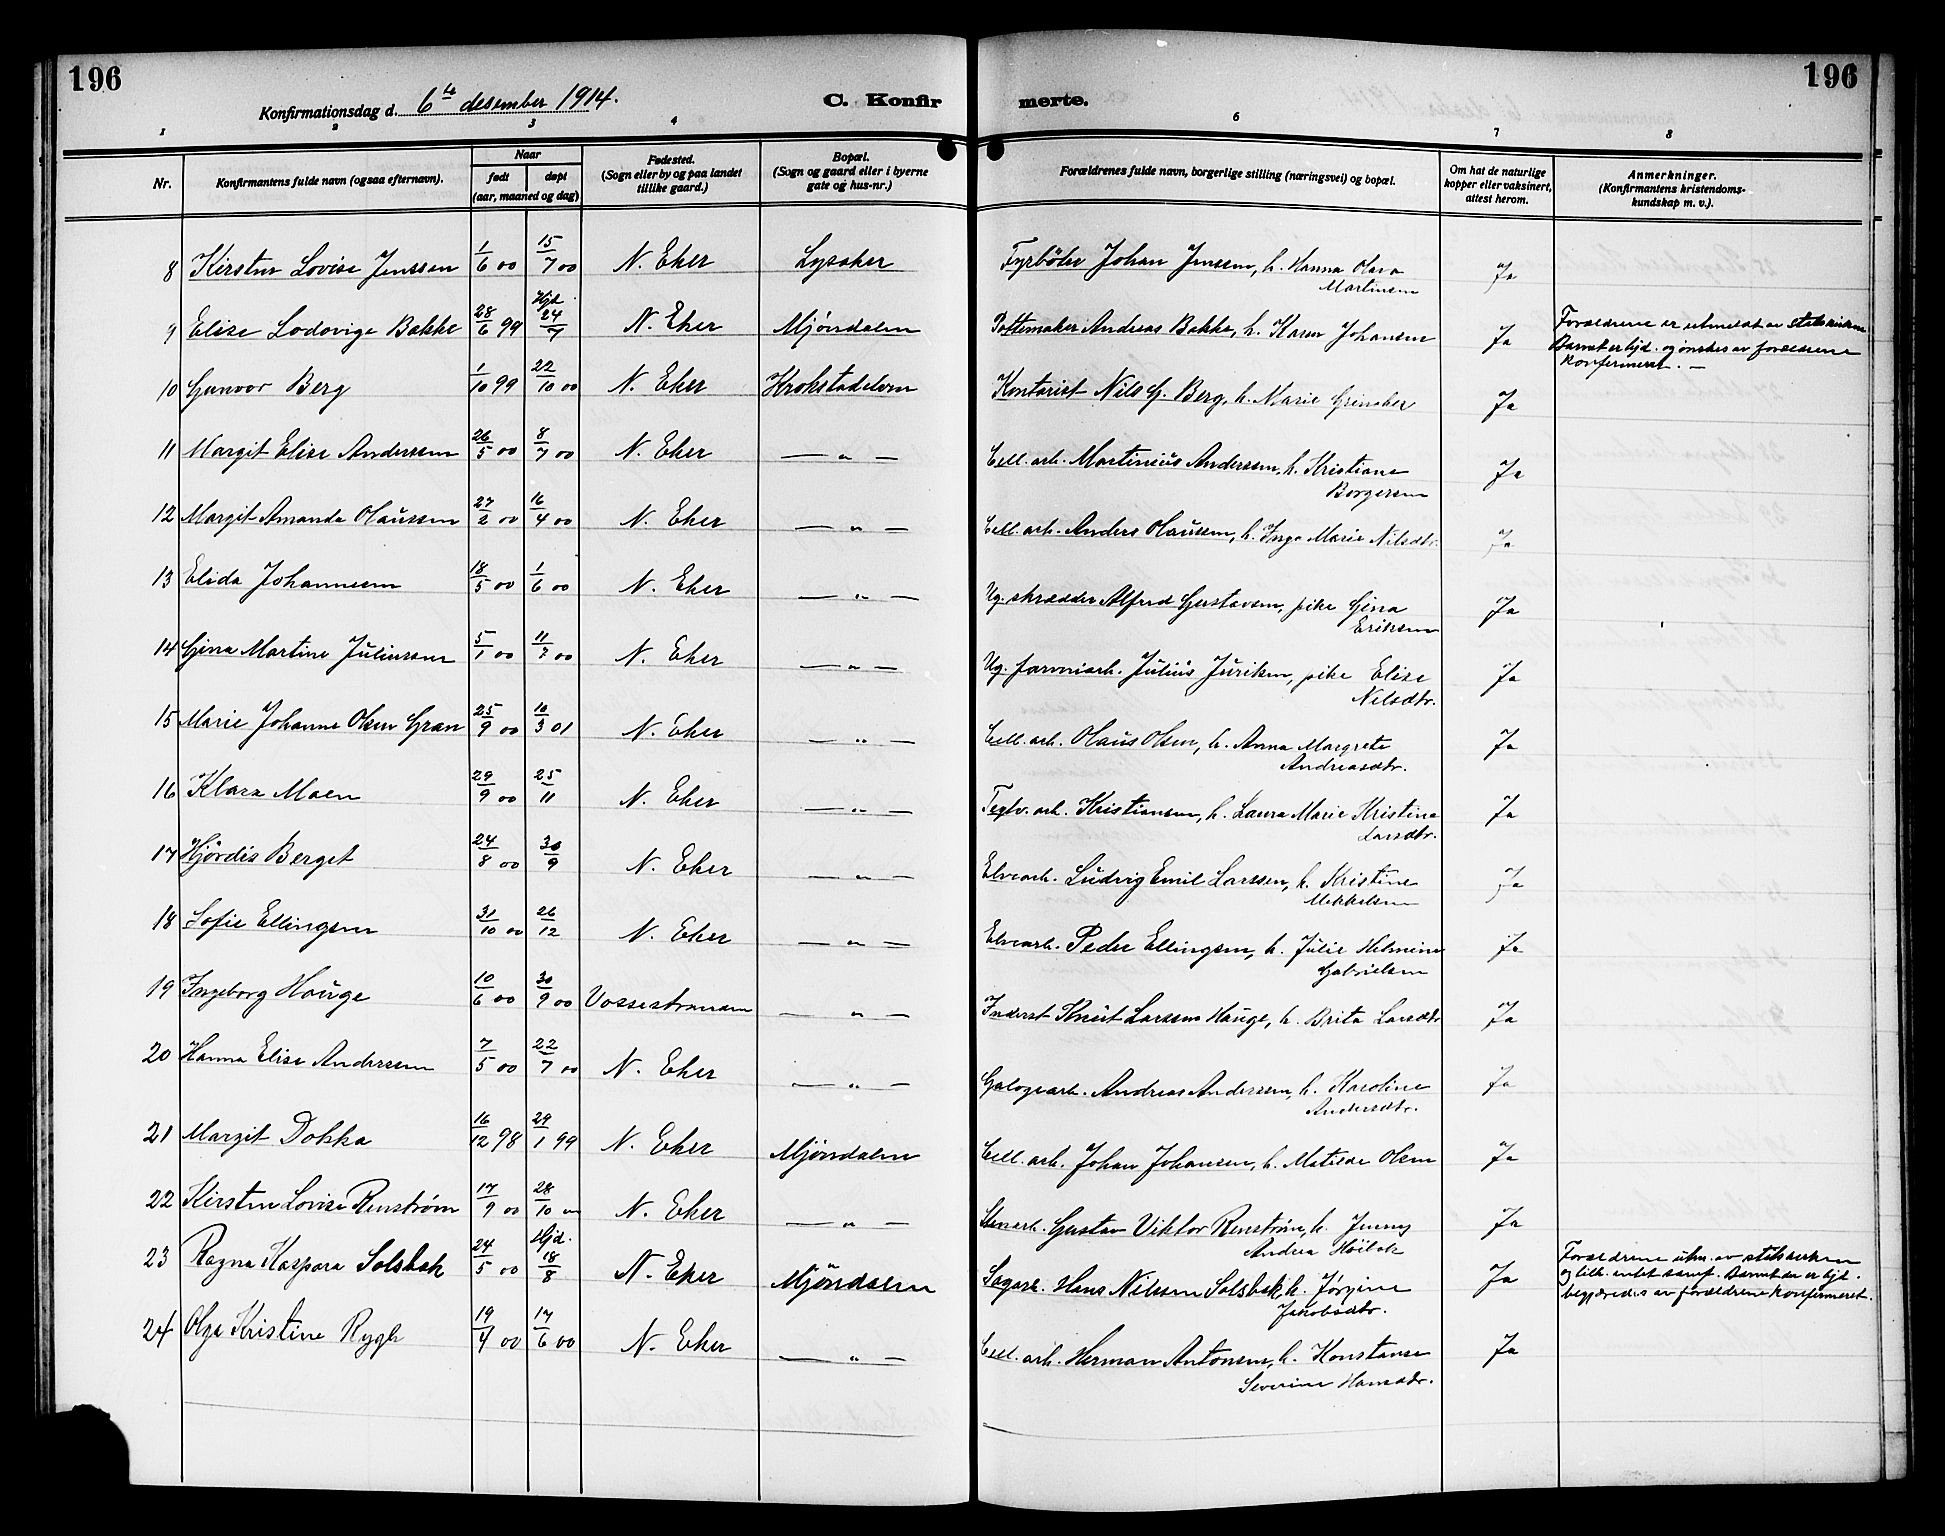 196
196
Konfirmationsdag d. 6te desember 1914.
C. Konfir
merte.
1 2 3 4 6 7 8
Nr.
Konfirmantens fulde navn (ogsaa efternavn).
Naar
født døpt
(aar, maaned og dag)
Fødested.
(Sogn eller by og paa landet
tillike gaard.)
Bopæl.
(Sogn og gaard eller i byerne
gate og hus-nr.)
Forældrenes fulde navn, borgerlige stilling (næringsvei) og bopæl.
Om hat de naturlige
kopper eller vaksinert,
attest herom.
Anmerkninger.
(Konfirmantens kristendoms-
kundskap m. v.).
8 Kirsten Lovise Jenssen 1/6 00 15/7 00 N. Eker Lysaker Fyrbøter Johan Jenssen, h. Hanna Olava Ja
Martinsen
9 Elise Lodovige Bakke 28/6 99 Hjd. 24/7 N. Eker Mjøndalen Pottemaker Andreas Bakke, h. Karen Johansen Ja
Forældrene er utmeldt av statskirken
Barnet er hjd. og ønskes av forældrene
konfirmert. —
10 Gunvor Berg 1/10 99 22/10 00 N. Eker Krokstadelven Kontorist Nils G. Berg, h. Marie Ja
11 Margit Elise Anderssen 26/5 00 8/7 00 N. Eker — " — Cell. arb. Martinius Anderssen, h. Kristiane Ja
Borgersen
12 Margit Amanda Olaussen 27/2 00 16/4 00 N. Eker — " — Cell. arb. Anders Olaussen, h. Inga Marie Nilsdtr. Ja
13 Elida Johannesen 18/5 00 1/6 00 N. Eker — " — Ug. skrædder Alfred Gustavsen, pike Gina Ja
Eriksen
14 Gina Martine Juliussen 5/1 00 11/7 00 N. Eker — " — Ug. Julius Juriksen, pike Elise Ja
Nilsdtr.
15 Marie Johanne Olsen Gran 25/9 00 10/3 01 N. Eker — " — Cell. arb. Olaus Olsen, h. Anna Margrete Ja
Andreasdtr.
16 Klara Moen 29/9 00 25/11 N. Eker — " — Teglv. arb. Kristiansen, h. Laura Marie Kristine Ja
Larsdtr.
17 Hjördis Berget 24/8 00 30/9 N. Eker — " — Elvearb. Ludvig Emil Larssen, h. Kristine Ja
Mikkelsen
18 Sofie Ellingsen 31/10 00 26/12 N. Eker — " — Elvearb. Peder Ellingsen, h. Julie Helmine Ja
Gabrielsen
19 Ingeborg Hauge 10/6 00 30/9 00 Vossestranden — " — Inderst Knut Larssen Hauge, h. Brita Larsdtr Ja
20 Hanna Elise Anderssen 7/5 00 22/7 00 N. Eker — " — Galogearb. Andreas Anderssen, h. Karoline Ja
Andersdtr.
21 Margit Dokka 16/12 98 29/1 99 N. Eker Mjøndalen Cell. arb. Johan Johansen, h. Matilde Olsen Ja
22 Kirsten Lovise Renström 17/9 00 28/10 00 N. Eker — " — Stenarb. Gustav Viktor Renström, h. Jenny Ja
Andrea
23 Ragna Kaspara Solsbak 24/5 00 Hjd. 18/8 N. Eker Mjöndalen Sagarb. Hans Nilssen Solsbak, h. Jörgine Ja
Jakobsdtr.
Forældrene utm. av statskirken
og tilh. intet samf. Barnet er hjd.
begjæredes av forældrene konfirmeret.
24 Olga Kristine Rygh 19/4 00 17/6 00 N. Eker — " — Cell. arb. Herman Antonsen, h. Konstanse Ja
Severine Hansdtr.